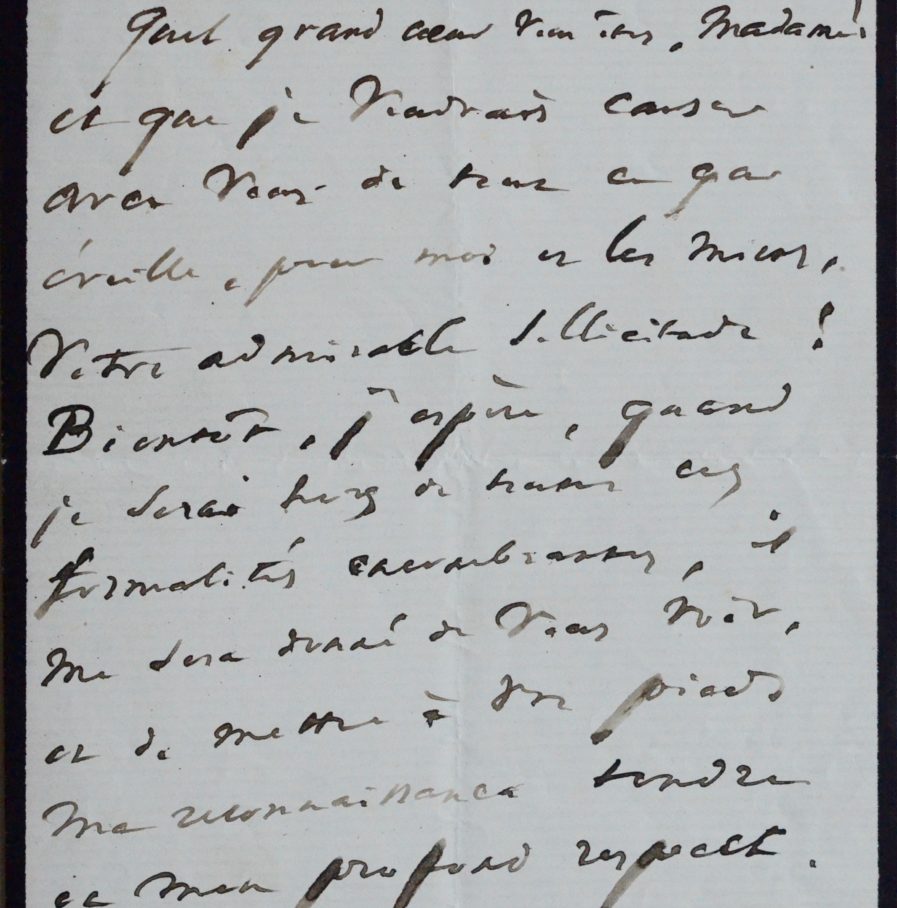 Quel grand cœur vous êtes, Madame!
et que je voudrais causer
avec vous de tout ce que
éveille, pour moi et les miens,
votre admirable sollicitude !
Bientôt, j'espère, quand
je serai hors de toutes ces
formalités encombrantes, il
me sera donné de vous voir,
et de mettre à vos pieds
ma reconnaissance tendre
et mon profond respect.